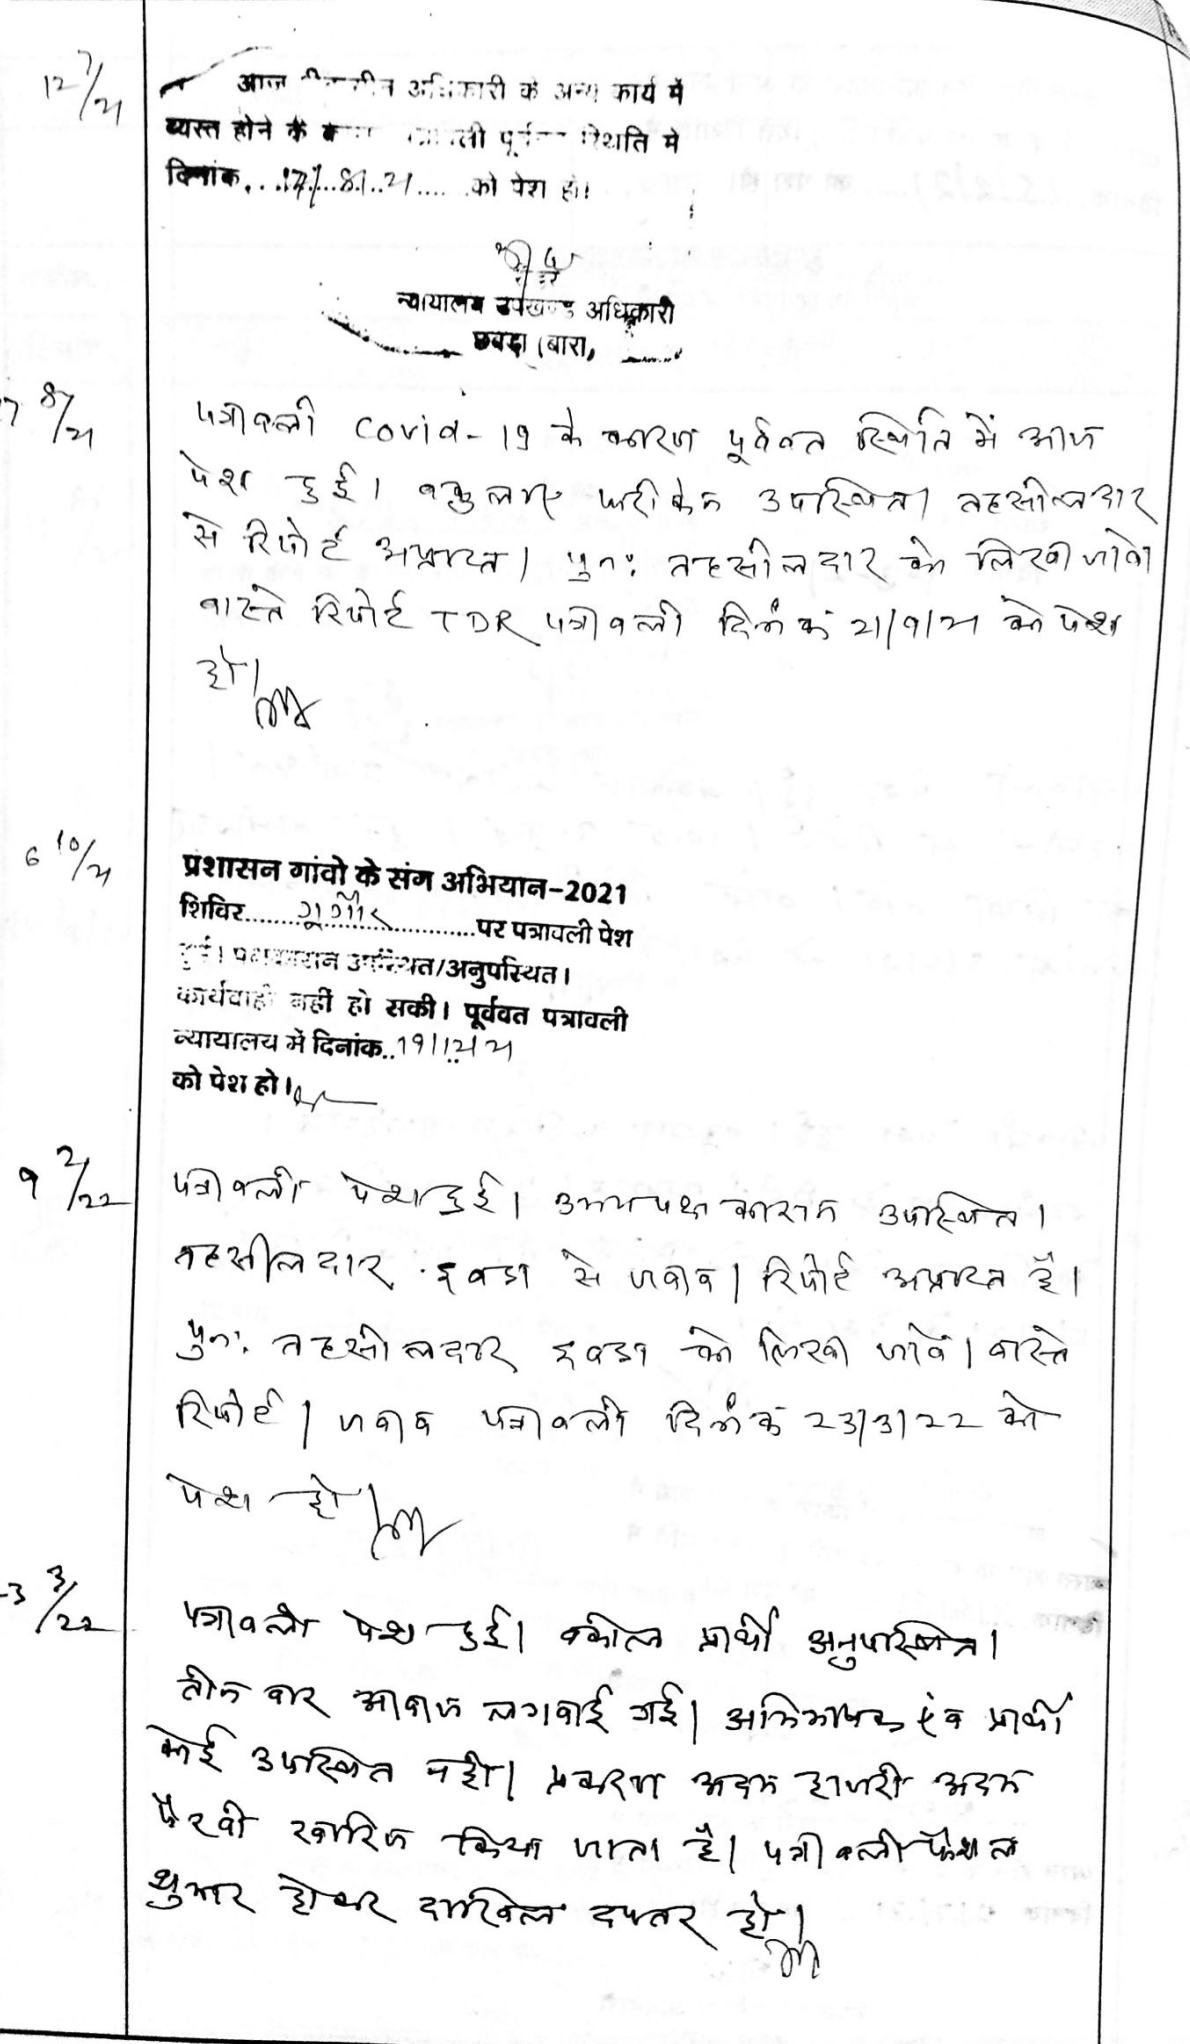 12 7/21
आज अधिकारी के अन्य कार्य में
व्यस्त होने के पूर्व स्थिति में
दिनांक...17/..8/..21..... को पेश हो।
न्यायालय उपखण्ड अधिकारी
छबड़ा (बारा)
17 8/21
पत्रावली Covid-19 के कारण पूर्ववत स्थिति में आज
पेश हुई। वकुलाए फरीकेन उपस्थित। तहसीलदार
से रिपोर्ट अप्राप्त। पुनः तहसीलदार को लिखा जावे।
वास्ते रिपोर्ट TDR पत्रावली दिनांक 21/9/21 को पेश
हो।
6 10/21
प्रशासन गांवो के संग अभियान-2021
शिविर........गूगोर...............पर पत्रावली पेश
हुई। पक्षकारान उपस्थित/अनुपस्थित।
कार्यवाही नहीं हो सकी। पूर्ववत पत्रावली
न्यायालय में दिनांक..
को पेश हो।
9 2/22
पत्रावली पेश हुई। उभयपक्षकारान उपस्थित।
तहसीलदार छबडा से जवाब। रिपोर्ट अप्राप्त है।
पुनः तहसीलदार छबडा को लिखा जावें। वास्ते
रिपोर्ट। जवाब पत्रावली दिनांक 23/3/22 को
पेश हो।
3/22
पत्रावली पेश हुई। वकील प्रार्थी अनुपस्थित।
तीन बार आवाज लगवाई गई। अभिभाषक एंव प्रार्थी
कोई उपस्थित नही। प्रकरण अदम हाजरी अदम
पैरवी खारिज किया जाता है। पत्रावली फैशल
शुमार होकर दाखिल दफ्तर हो।